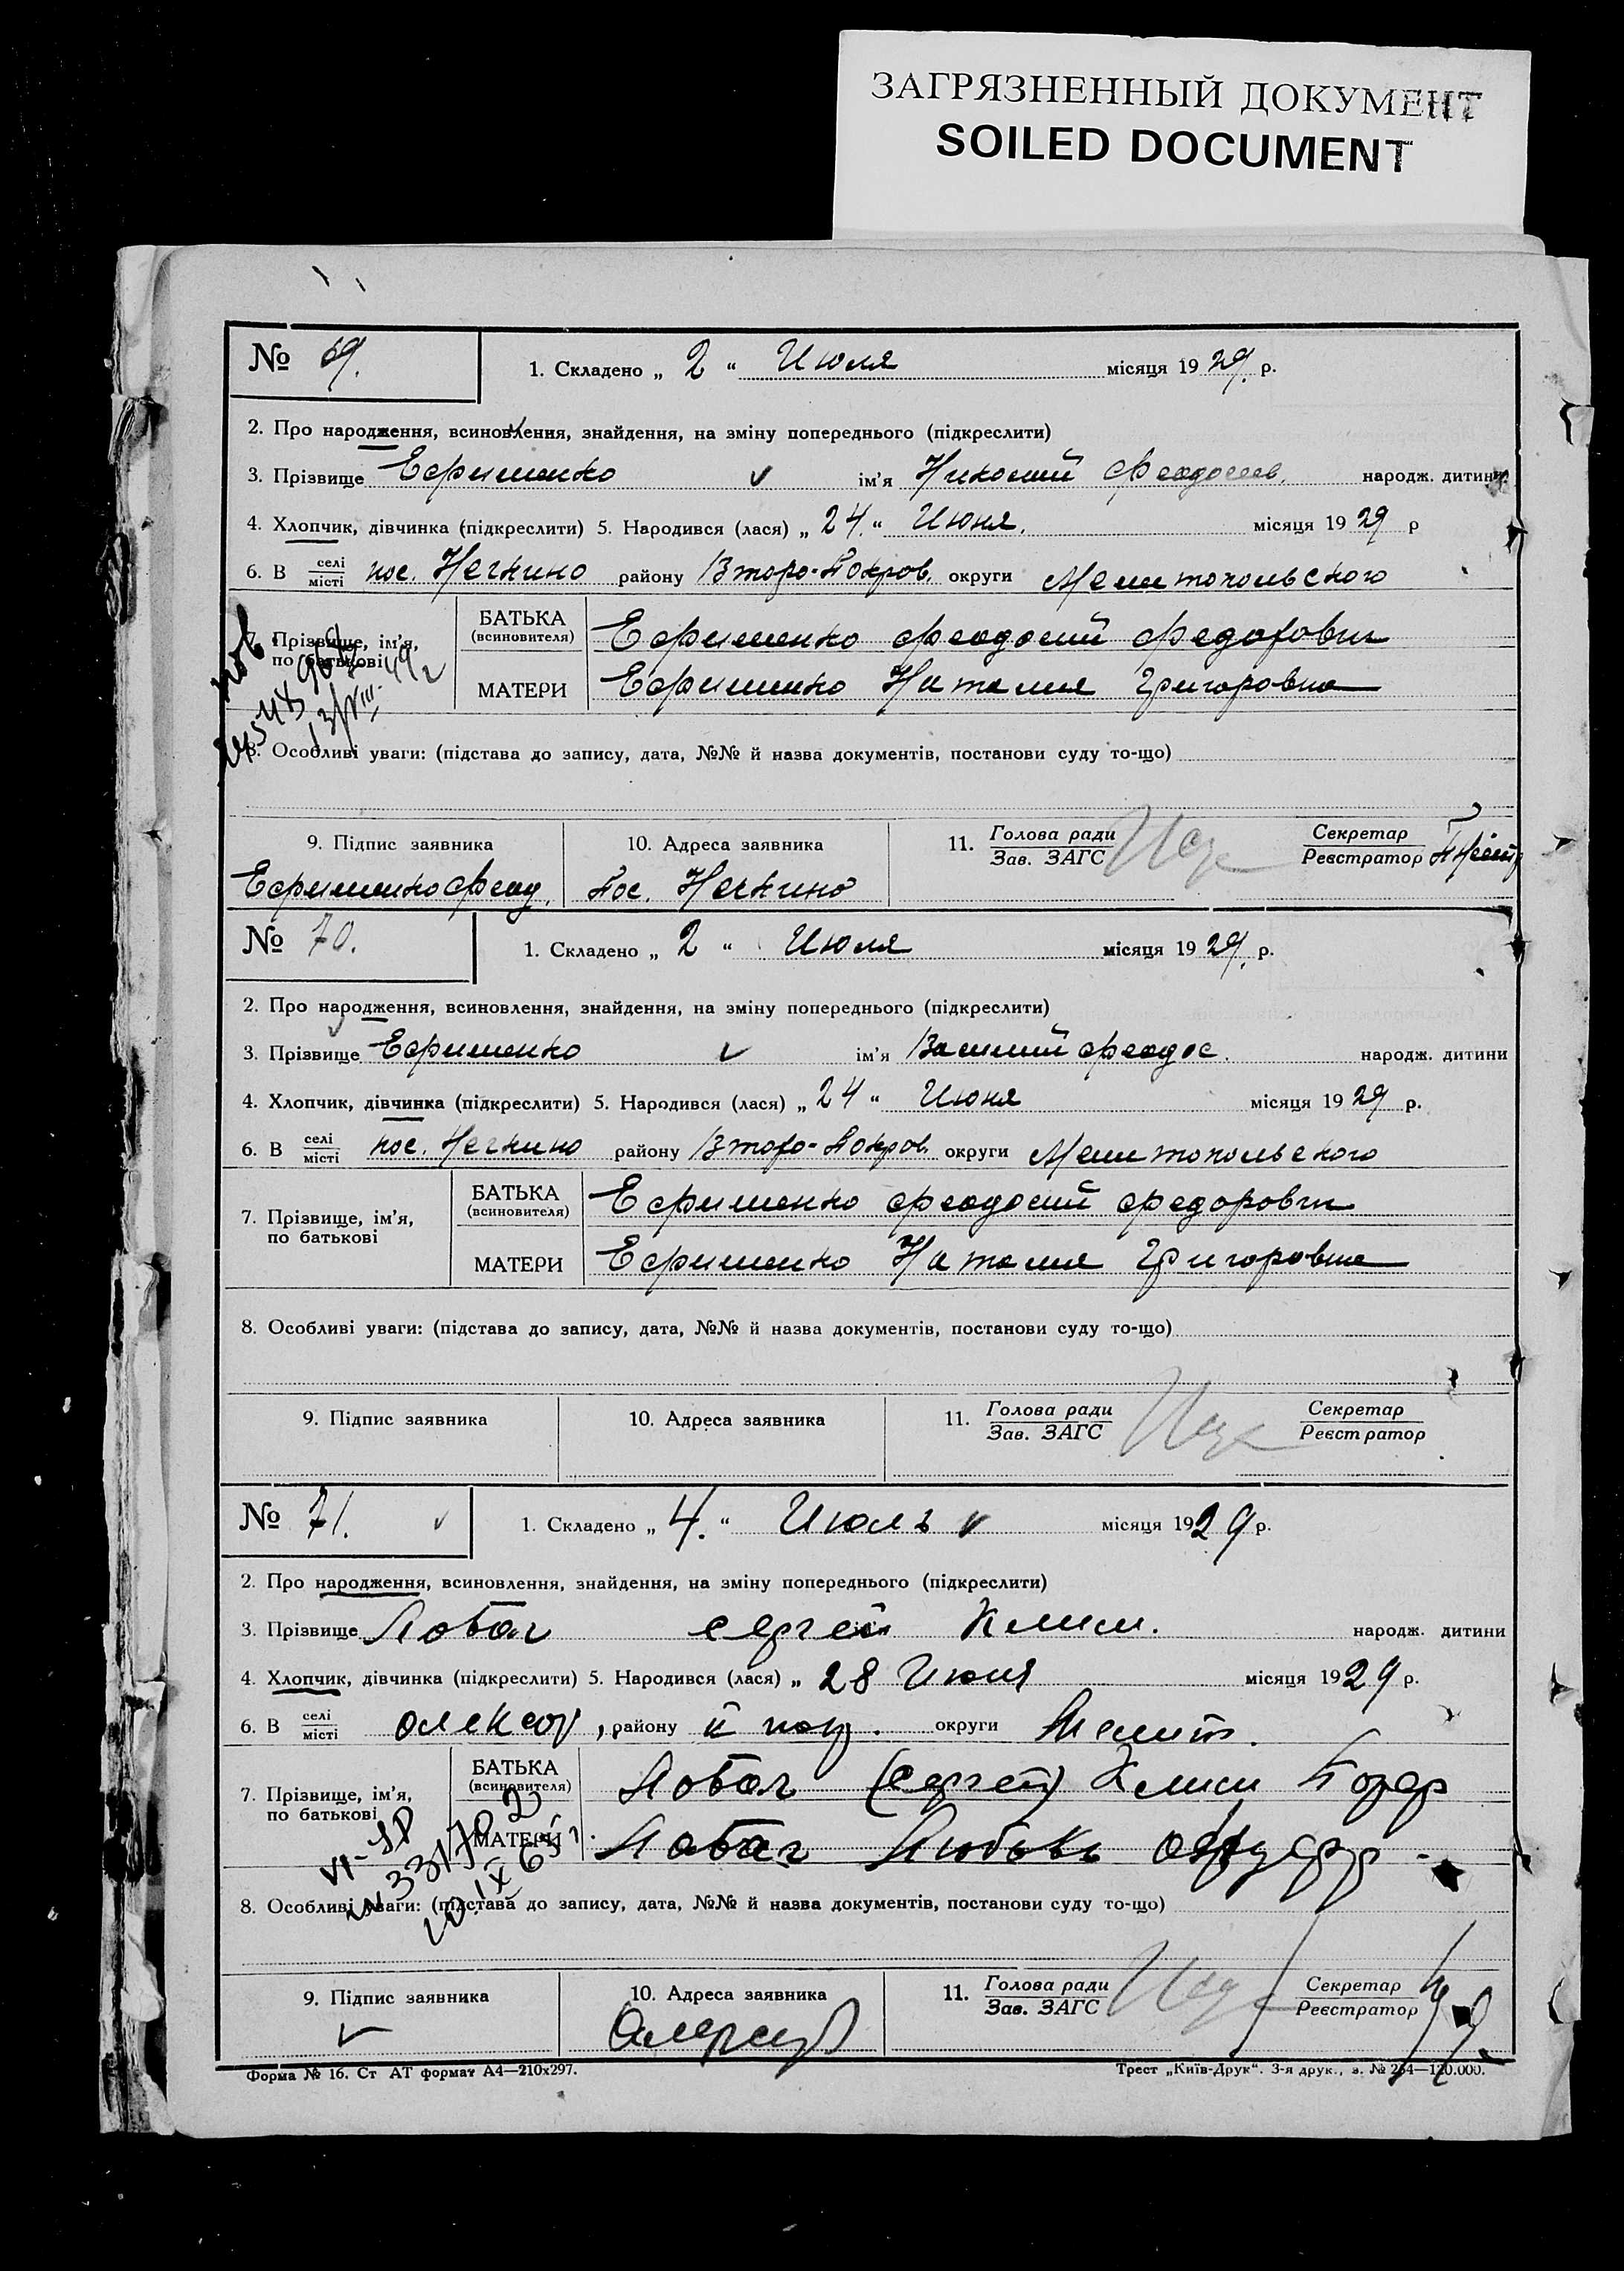 ЗАГРЯЗНЕННЫЙ ДОКУМЕНТ
SOILED DOCUMENT
№ 69. 1. Складено „ 2 “ Июля місяця 1929. р.
2. Про народження, всиновлення, знайдення, на зміну попереднього (підкреслити)
3. Прізвище Ефименко ім'я Николай Феодосиев. народж. дитини
4. Хлопчик, дівчинка (підкреслити) 5. Народився (лася) „ 24. “ Июня. місяця 1929 р
6. В селі/місті пос. Нечкино району Второ-Покров. округи Мелитопольского
7. Прізвище, ім'я, по батькові
БАТЬКА (всиновителя) Ефименко Феодосий Федорович
МАТЕРИ Ефименко Наталия Григоровна
8. Особливі уваги: (підстава до запису, дата, №№ й назва документів, постанови суду то-що)
9. Підпис заявника 10. Адреса заявника 11. Голова ради/Зав. ЗАГС Секретар/Реєстратор
Ефименко Феод. Пос. Нечкино
№ 70. 1. Складено „ 2 “ Июля місяця 1929. р.
2. Про народження, всиновлення, знайдення, на зміну попереднього (підкреслити)
3. Прізвище Ефименко ім'я Василий Феодос. народж. дитини
4. Хлопчик, дівчинка (підкреслити) 5. Народився (лася) „ 24 “ Июня місяця 1929 р.
6. В селі/місті пос. Нечкино району Второ-Покров. округи Мелитопольского
7. Прізвище, ім'я, по батькові
БАТЬКА (всиновителя) Ефименко Феодосий Федорович
МАТЕРИ Ефименко Наталия Григоровна
8. Особливі уваги: (підстава до запису, дата, №№ й назва документів, постанови суду то-що)
9. Підпис заявника 10. Адреса заявника 11. Голова ради/Зав. ЗАГС Секретар/Реєстратор
№ 71. 1. Складено „ 4. “ Июль місяця 1929 р.
2. Про народження, всиновлення, знайдення, на зміну попереднього (підкреслити)
3. Прізвище Лобач Сергей Клим. народж. дитини
4. Хлопчик, дівчинка (підкреслити) 5. Народився (лася) „ 28 Июня місяця 1929 р.
6. В селі/місті району II пок. округи Мелит.
7. Прізвище, ім'я, по батькові
БАТЬКА (всиновителя) Лобач (Сергей) Клим
МАТЕРИ Лобач Любовь
8. Особливі уваги: (підстава до запису, дата, №№ й назва документів, постанови суду то-що)
9. Підпис заявника 10. Адреса заявника 11. Голова ради/Зав. ЗАГС Секретар/Реєстратор
Форма № 16. Ст АТ формат А4—210х297. Трест „Київ-Друк“. 3-я друк., з. № 264—120.000.